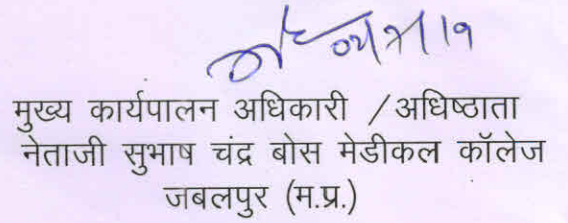 मुख्य कार्यपालन अधिकारी /अधिष्ठाता
नेताजी सुभाष चंद्र बोस मेडीकल कॉलेज
जबलपुर (म.प्र.)